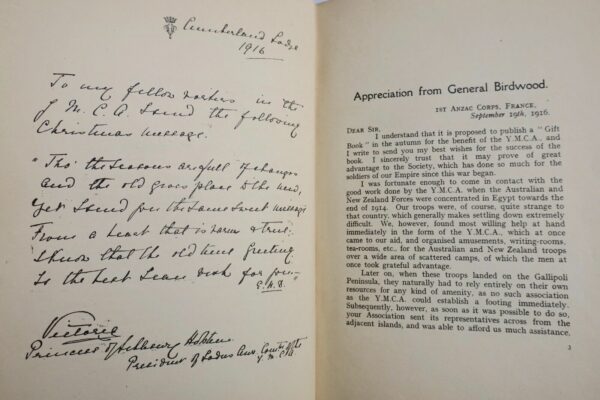 Cumberland Lodge
1916
To my fellow workers in the
Y. M. C. A. I send the following
Christmas message.
"Tho' the Seasons are full of changes
and the old gives place to the new,
Yet I send you the same sweet message
From a heart that is warm & true.
I know that the old time greeting
Is the best I can wish for you—
E.H.D.
Victoria
Princess of Schleswig Holstein
President of Ladies Aux. Committee
Y. M. C. A.
Appreciation from General Birdwood.
1ST ANZAC CORPS, FRANCE,
September 19th, 1916.
DEAR SIR,
I understand that it is proposed to publish a "Gift
Book" in the autumn for the benefit of the Y.M.C.A., and
I write to send you my best wishes for the success of the
book. I sincerely trust that it may prove of great
advantage to the Society, which has done so much for the
soldiers of our Empire since this war began.
I was fortunate enough to come in contact with the
good work done by the Y.M.C.A. when the Australian and
New Zealand Forces were concentrated in Egypt towards the
end of 1914. Our troops were, of course, quite strange to
that country, which generally makes settling down extremely
difficult. We, however, found most willing help at hand
immediately in the form of the Y.M.C.A., which at once
came to our aid, and organised amusements, writing-rooms,
tea-rooms, etc., for the Australian and New Zealand troops
over a wide area of scattered camps, of which the men at
once took grateful advantage.
Later on, when these troops landed on the Gallipoli
Peninsula, they naturally had to rely entirely on their own
resources for any kind of amenity, as no such association
as the Y.M.C.A. could establish a footing immediately.
Subsequently, however, as soon as it was possible to do so,
your Association sent its representatives across from the
adjacent islands, and was able to afford us much assistance,
3